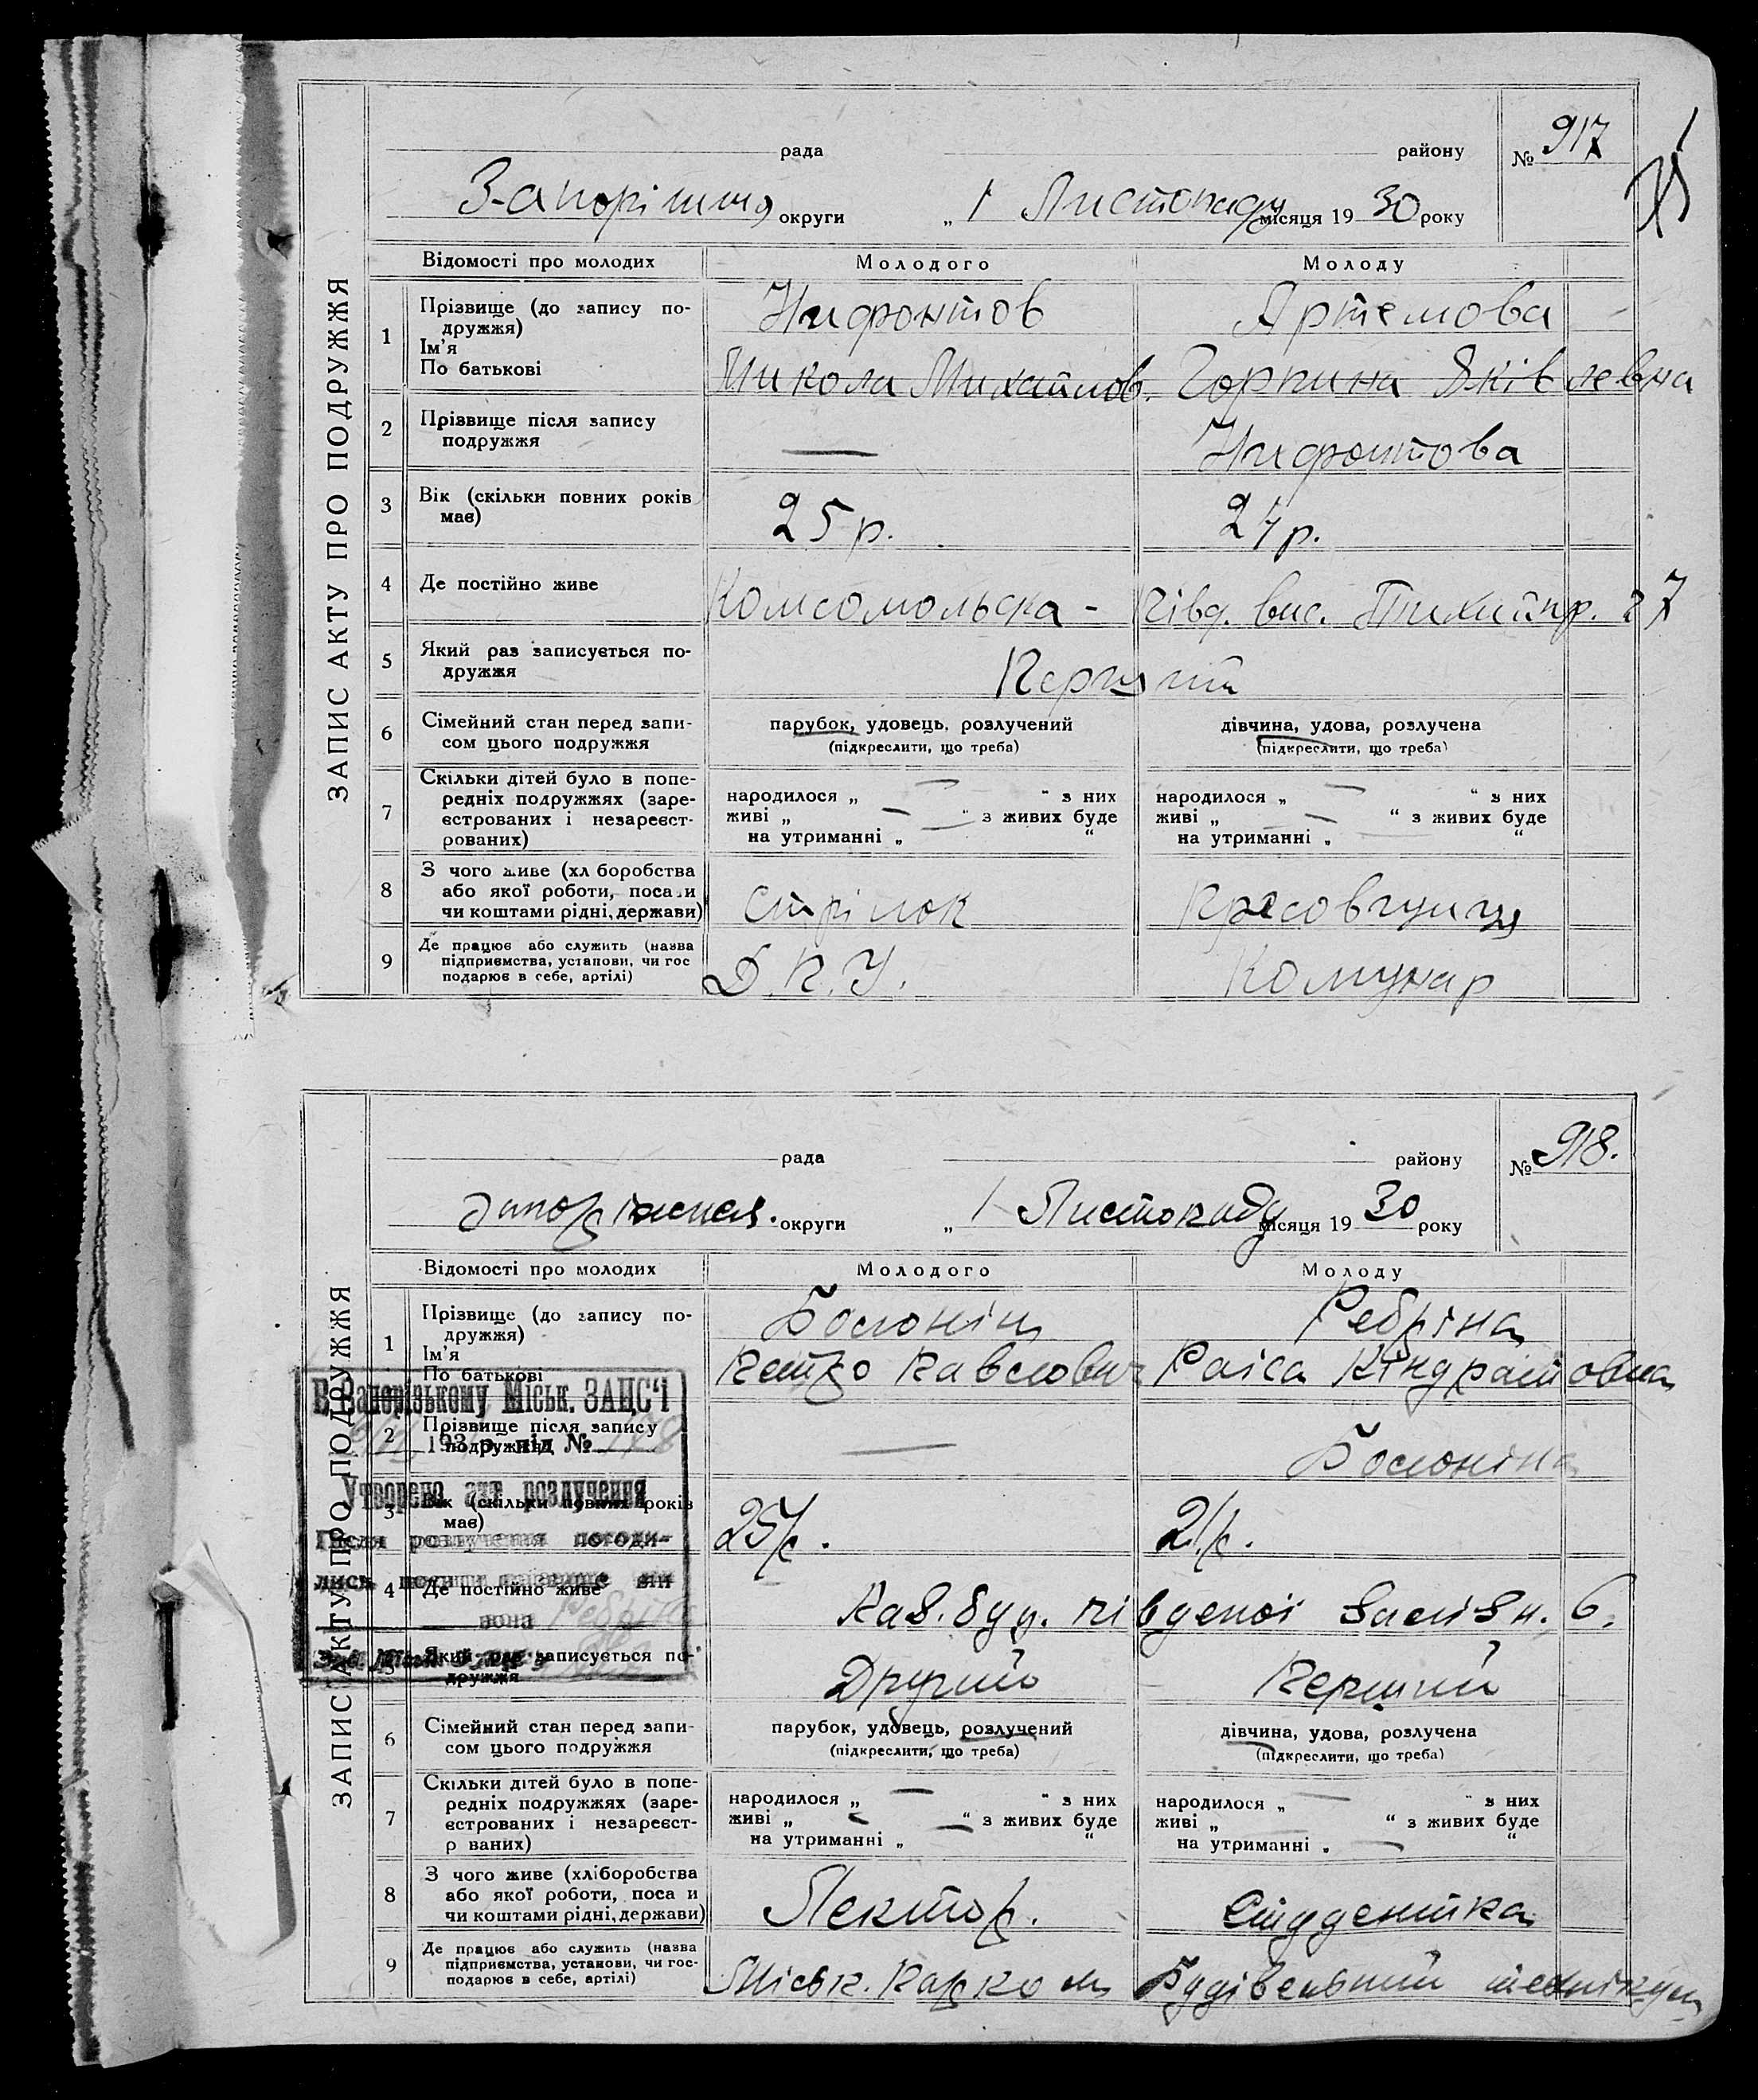 ЗАПИС АКТУ ПРО ПОДРУЖЖЯ
рада району № 917
Запоріжжя округи „ 1 Листопаду місяця 19 30 року
Відомості про молодих Молодого Молоду
1 Прізвище (до запису по-
дружжя)
Ім'я
По батькові
Нифонтов Артемова
Микола Михайлов. Горпина Яківлевна
2 Прізвище після запису
подружжя
— Нифонтова
3 Вік (скільки повних років
має)
25 р. 24 р.
4 Де постійно живе
Комсомольська - Півд. вис. Тихий пр. 27
5 Який раз записується по-
дружжя
Перший
6 Сімейний стан перед запи-
сом цього подружжя
парубок, удовець, розлучений дівчина, удова, розлучена
(підкреслити, що треба) (підкреслити, що треба)
7 Скільки дітей було в попе-
редніх подружжях (заре-
єстрованих і незареєст-
рованих)
народилося „ — “ з них народилося „ — “ з них
живі „ — “ з живих буде живі „ — “ з живих буде
на утриманні „ — “ на утриманні „ — “
8 З чого живе (хл боробства
або якої роботи, поса и
чи коштами рідні, держави)
Стрілок
9 Де працює або служить (назва
підприємства, установи, чи гос
подарює в себе, артілі)
Д.П.У. Комунар
ЗАПИС АКТУ ПРО ПОДРУЖЖЯ
рада району № 918.
округи „ 1 Листопаду місяця 19 30 року
Відомості про молодих Молодого Молоду
1 Прізвище (до запису по-
дружжя)
Ім'я
По батькові
Болонін Ребріна
Петро Павлович Раіса Кіндратовна
В Запорізькому Міськ. ЗАЦС'і
193 р. під № 178
Утворено акт розлучення
Після розлучення погоди-
лись він
вона Ребріна
2 Прізвище після запису
подружжя
— Болоніна
3 Вік (скільки повних років
має)
25 р. 21 р.
4 Де постійно живе
Кав. буд. південої 6.
5 Який раз записується по-
дружжя
Другий Перший
6 Сімейний стан перед запи-
сом цього подружжя
парубок, удовець, розлучений дівчина, удова, розлучена
(підкреслити, що треба) (підкреслити, що треба)
7 Скільки дітей було в попе-
редніх подружжях (заре-
єстрованих і незареєст-
р ваних)
народилося „ — “ з них народилося „ — “ з них
живі „ — “ з живих буде живі „ “ з живих буде
на утриманні „ “ на утриманні „ — “
8 З чого живе (хліборобства
або якої роботи, поса и
чи коштами рідні, держави)
Лектор. Студентка
9 Де працює або служить (назва
підприємства, установи, чи гос-
подарює в себе, артілі)
Міськ. Парком Будівельний технікум